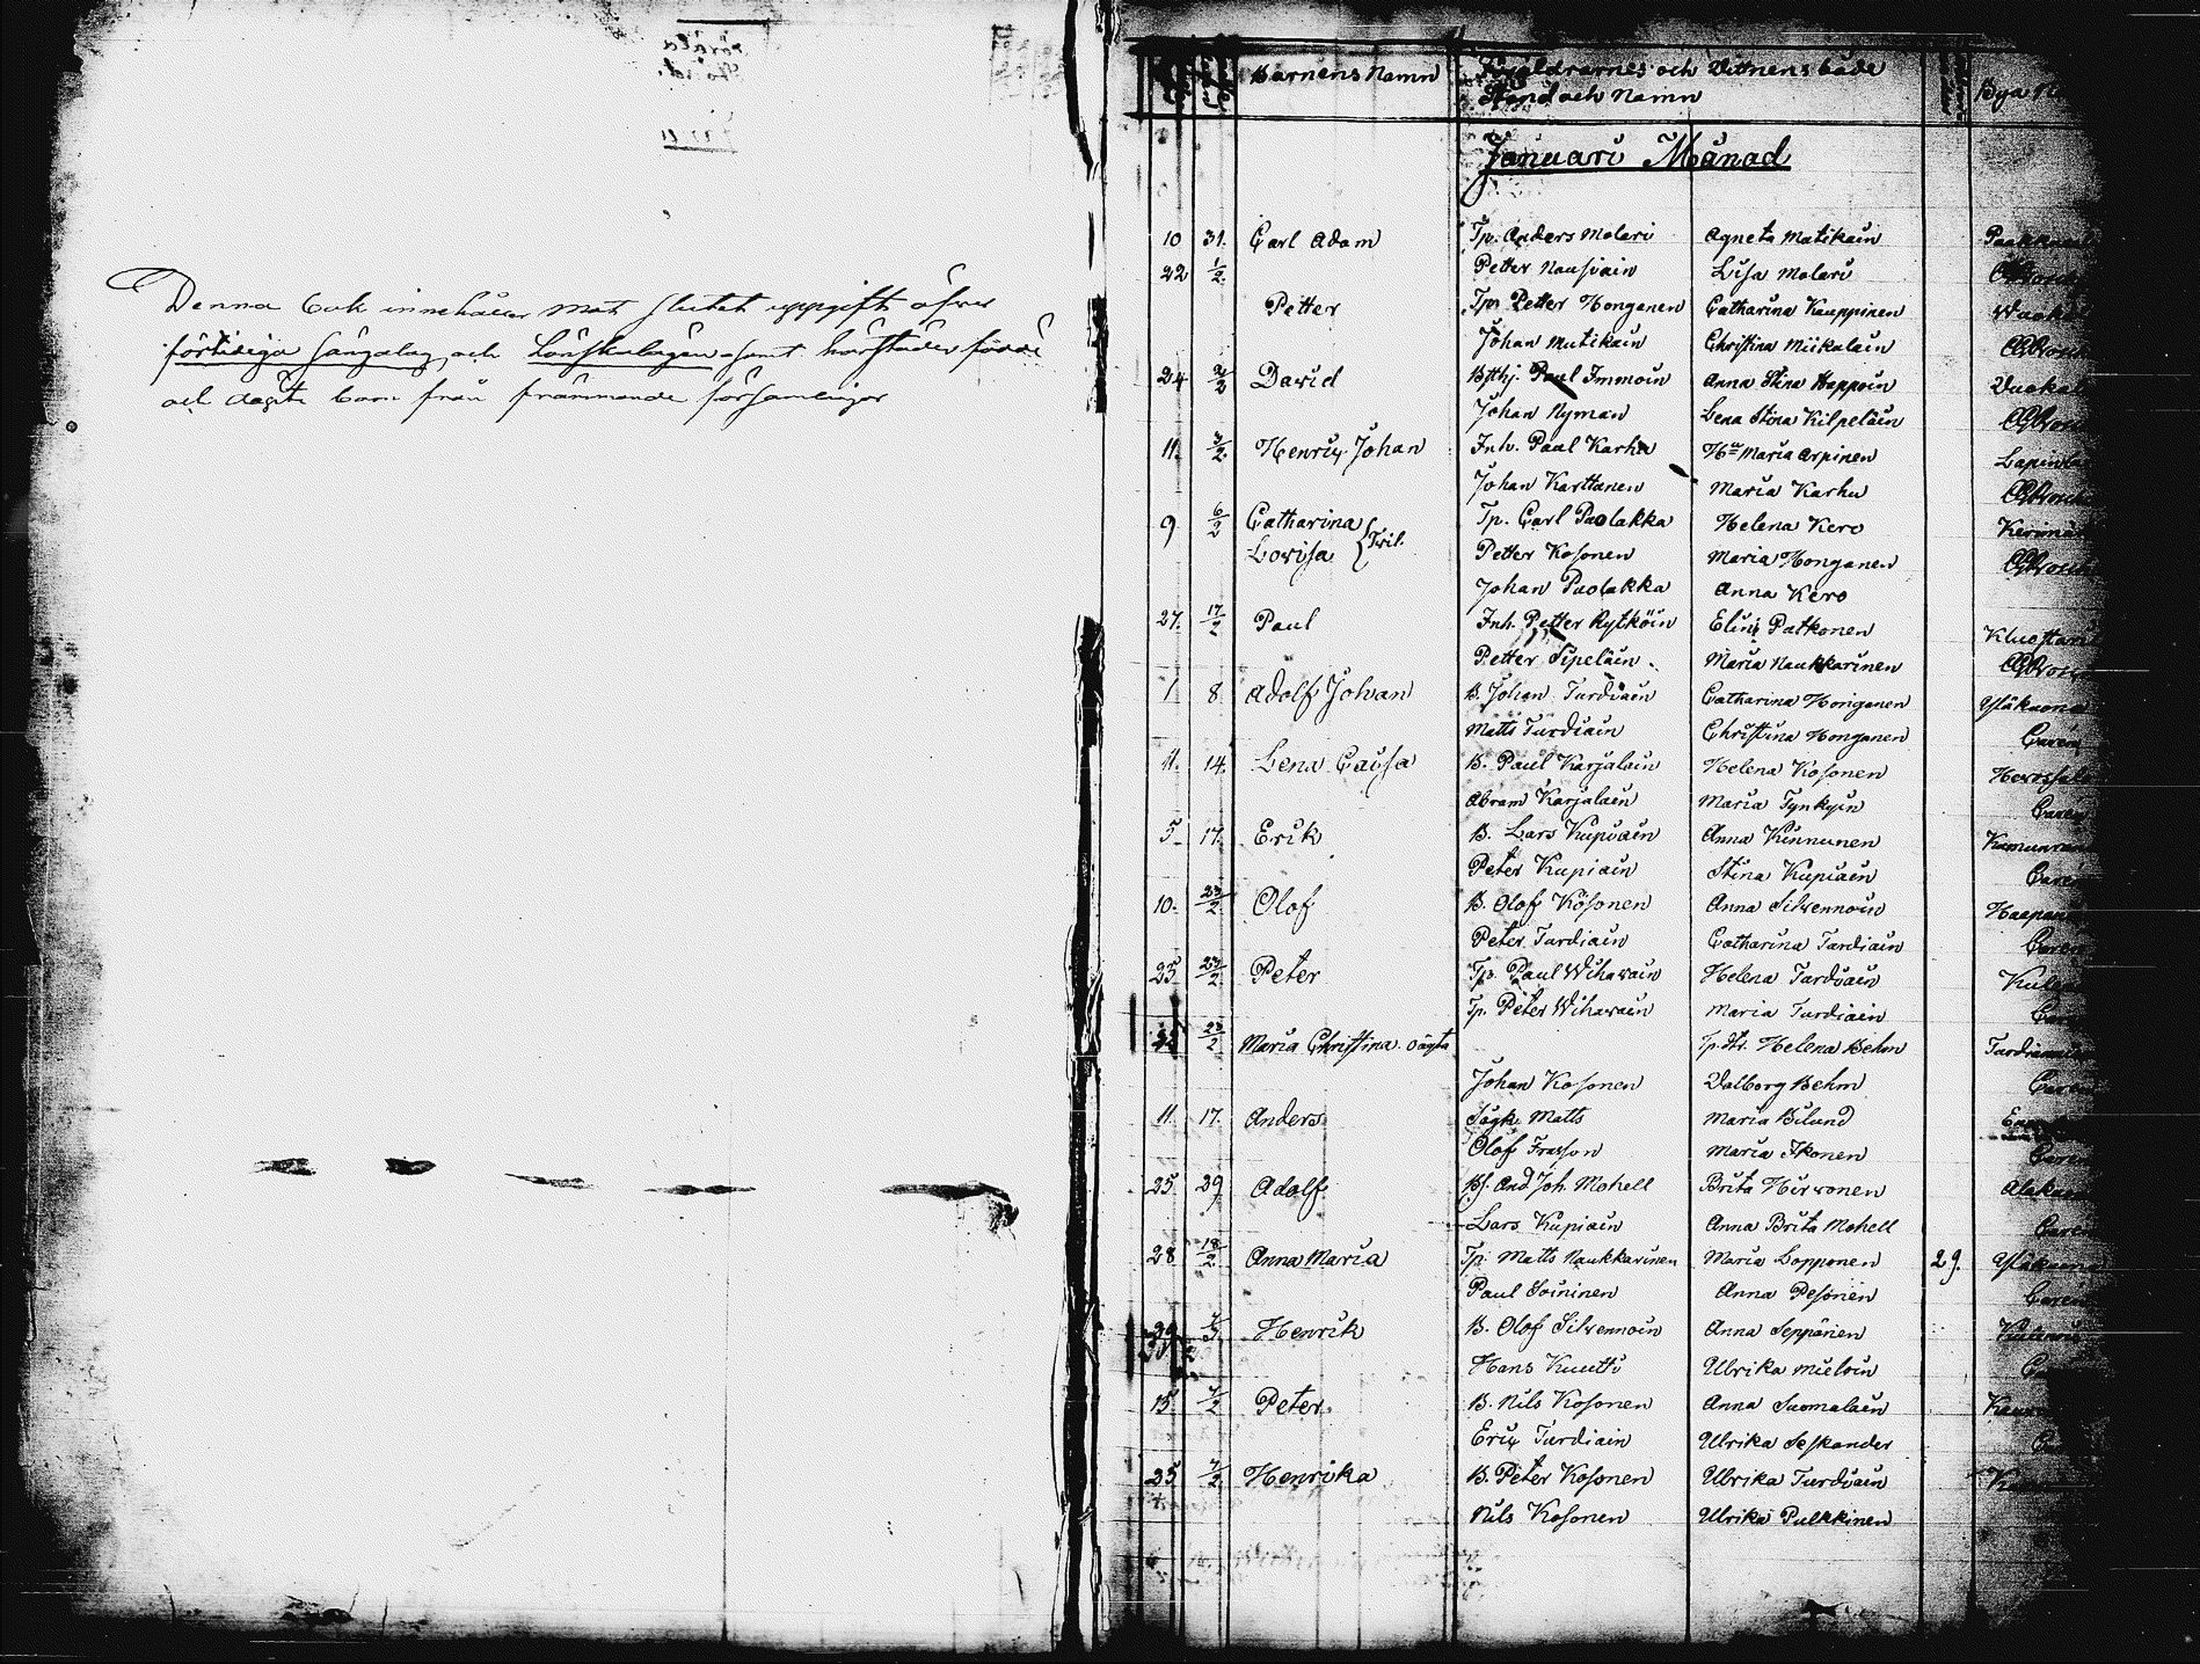 Denna bok innehåller mot slutet uppgift öfver
förtidiga sängalag och Lönskalägen samt härstädes födde
och döpte barn från främmande församlingar
Barnens Namn Föräldrarnes och Vittnens både Bya
Stand och Namn
Januari Månad
10 31. Carl Adam Tp. Anders Molari Agneta Matikain
22 1/2 Petter Nousiain Lisa Molari
Petter Tp. Petter Honganen Catharina Kauppinen
Johan Mutikain Christina Miikalain
24 2/2 David Paul Immoin Anna Stina Happoin
Johan Nyman Lena Stina Kilpeläin
11. 3/2 Henrix Johan Inh. Paul Karhu Hu Maria Arpinen
Johan Karttanen Maria Karhu
9 6/2 Catharina Tp. Carl Paolakka Helena Kero
Lovisa Tvil. Petter Kosonen Maria Honganen
Johan Paolakka Anna Kero
27. 17/2 Paul Inh. Petter Rytköin Elin Patkonen
Petter Sipeläin Maria Naukkarinen
1 8 Adolf Johan B. Johan Turdiain Catharina Honganen
Matts Turdiain Christina Honganen
11. 14. Lena Caisa B. Paul Karjalain Helena Kosonen
Abram Karjalain Maria Tynkyin
5 17. Erik B. Lars Kupiain Anna Kinnunen
Peter Kupiain Stina Kupiain
10. 23/2 Olof B. Olof Kosonen Anna Silvennoin
Peter Turdiain Catharina Turdiain
25 23/2 Peter Tp. Paul Wihavain Helena Turdiain
Tp. Peter Wihavain Maria Turdiain
23/2 Maria Christina oägta Tp. dtr. Helena Behm
Johan Kosonen Valborg Behm
11. 17. Anders Matts Maria Bilund
Olof Frasson Maria Ikonen
25 29 Adolf And. Joh. Mohell Brita Hirvonen
Lars Kupiain Anna Brita Mohell
28 18/2 Anna Maria Tp. Matts Naukkarinen Maria Lopponen 29.
Paul Soininen Anna Pesonen
Henrik B. Olof Silvennoin Anna Seppänen
Hans Kuutti Ulrika Mieloin
15 7/2 Peter B. Nils Kosonen Anna Suomalain
Erix Turdiain Ulrika Seskander
25 7/2 Henrika B. Peter Kosonen Ulrika Turdiain
Nils Kosonen Ulrika Pulkkinen